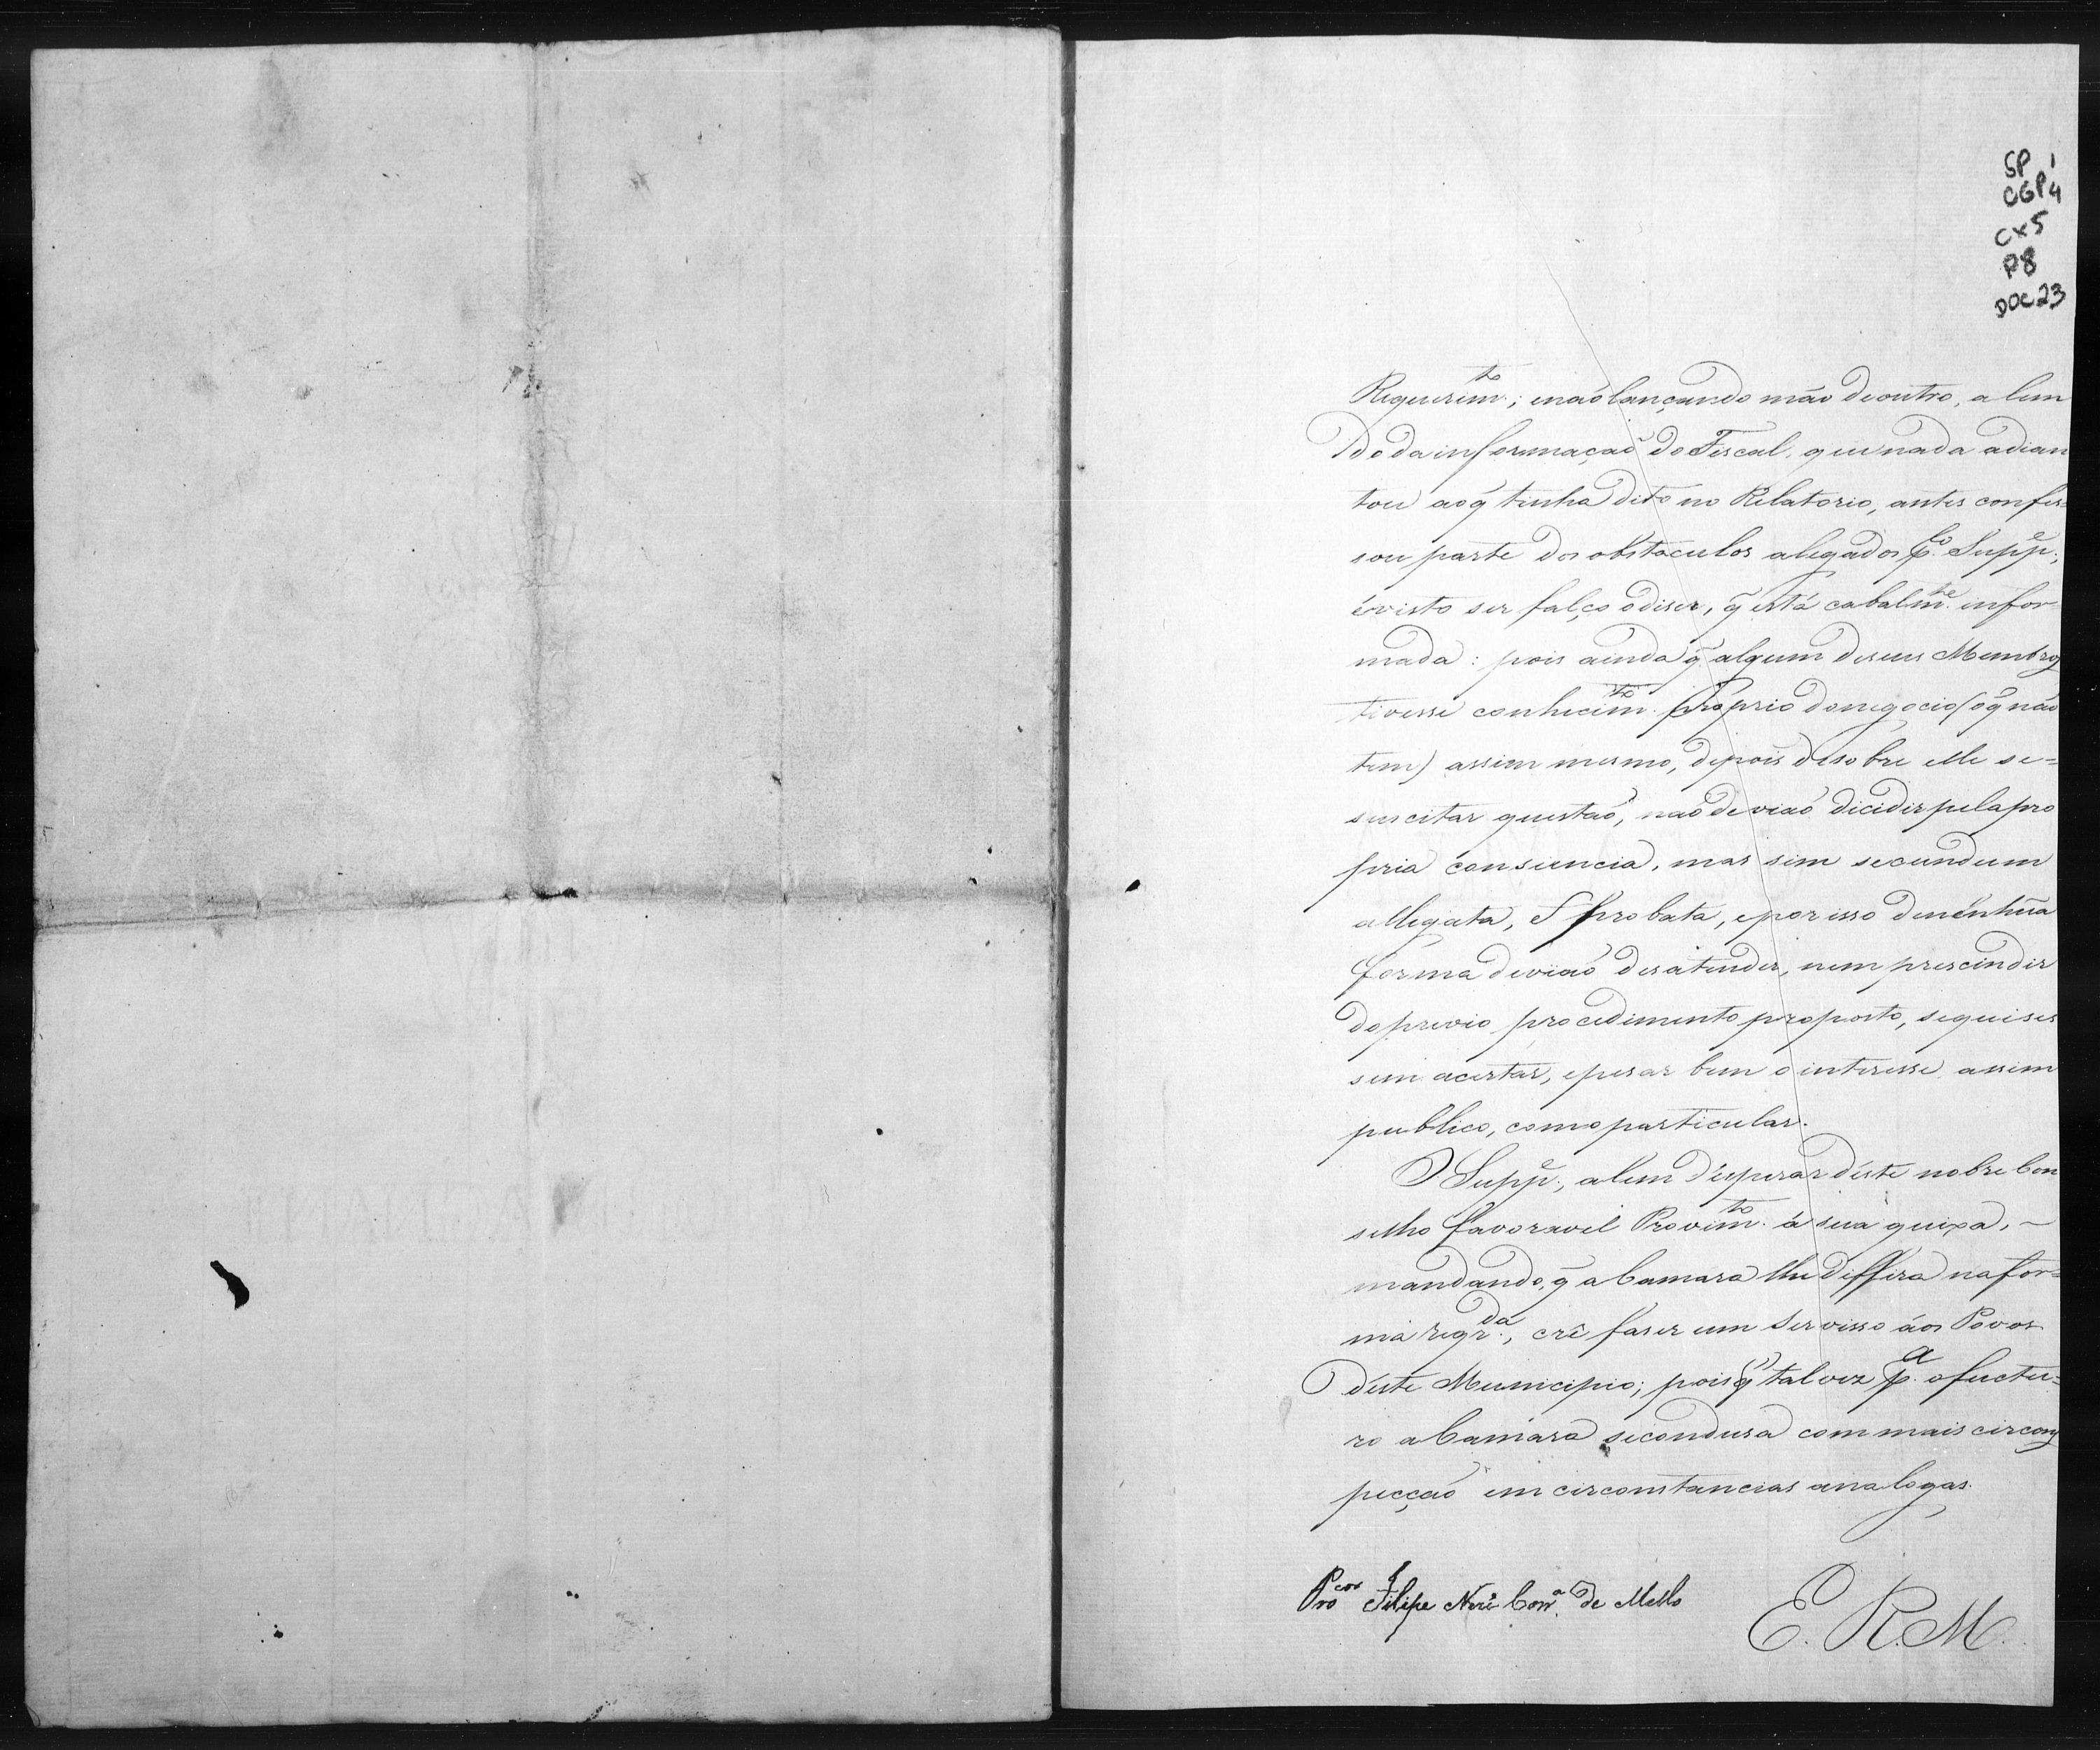 SP 1
CGP 4
CX5
P8
DOC 23
Requerimto.; enaõ lançando mão deoutro, a lem
do da informaçaõ do Fiscal, que nada adian
tou aoq̃ tinha dito no Relatorio, antes confes=
sou parte dos obstaculos alegados plo. Suppe.;
évisto ser falço odiser, q̃ está cabalmte. infor
mada: pois ainda q̃ algum deseus Membros
tivesse conhecimto. proprio donegocio (oq̃ não
tem) assim mesmo, depois desobre elle se=
suscitar questaõ, naõ deviaõ dicidir pelapro
pria consciencia, mas sim secundum
allegata, et probata, epor isso denénhũa
forma deviaõ desatender, nem prescindir
doprevio procedimento proposto, sequises
sem acertar, epesar bem ointeresse assim
publico, comoparticular.
O Suppe., alem d'esperar déste nobre Con
selho favoravel Provimto. á sua queixa, ~
mandando, q̃ aCamara lhe diffira nafor=
ma reqrda., crê faser um servisso áos Povos
déste Municipio; poisq̃ talvez pa. ofuctu=
ro aCamara seconduza commais circons
pecçaõ em circomstancias analogas.
Procor Filipe Neri Corra. de Mello
E. R. M.